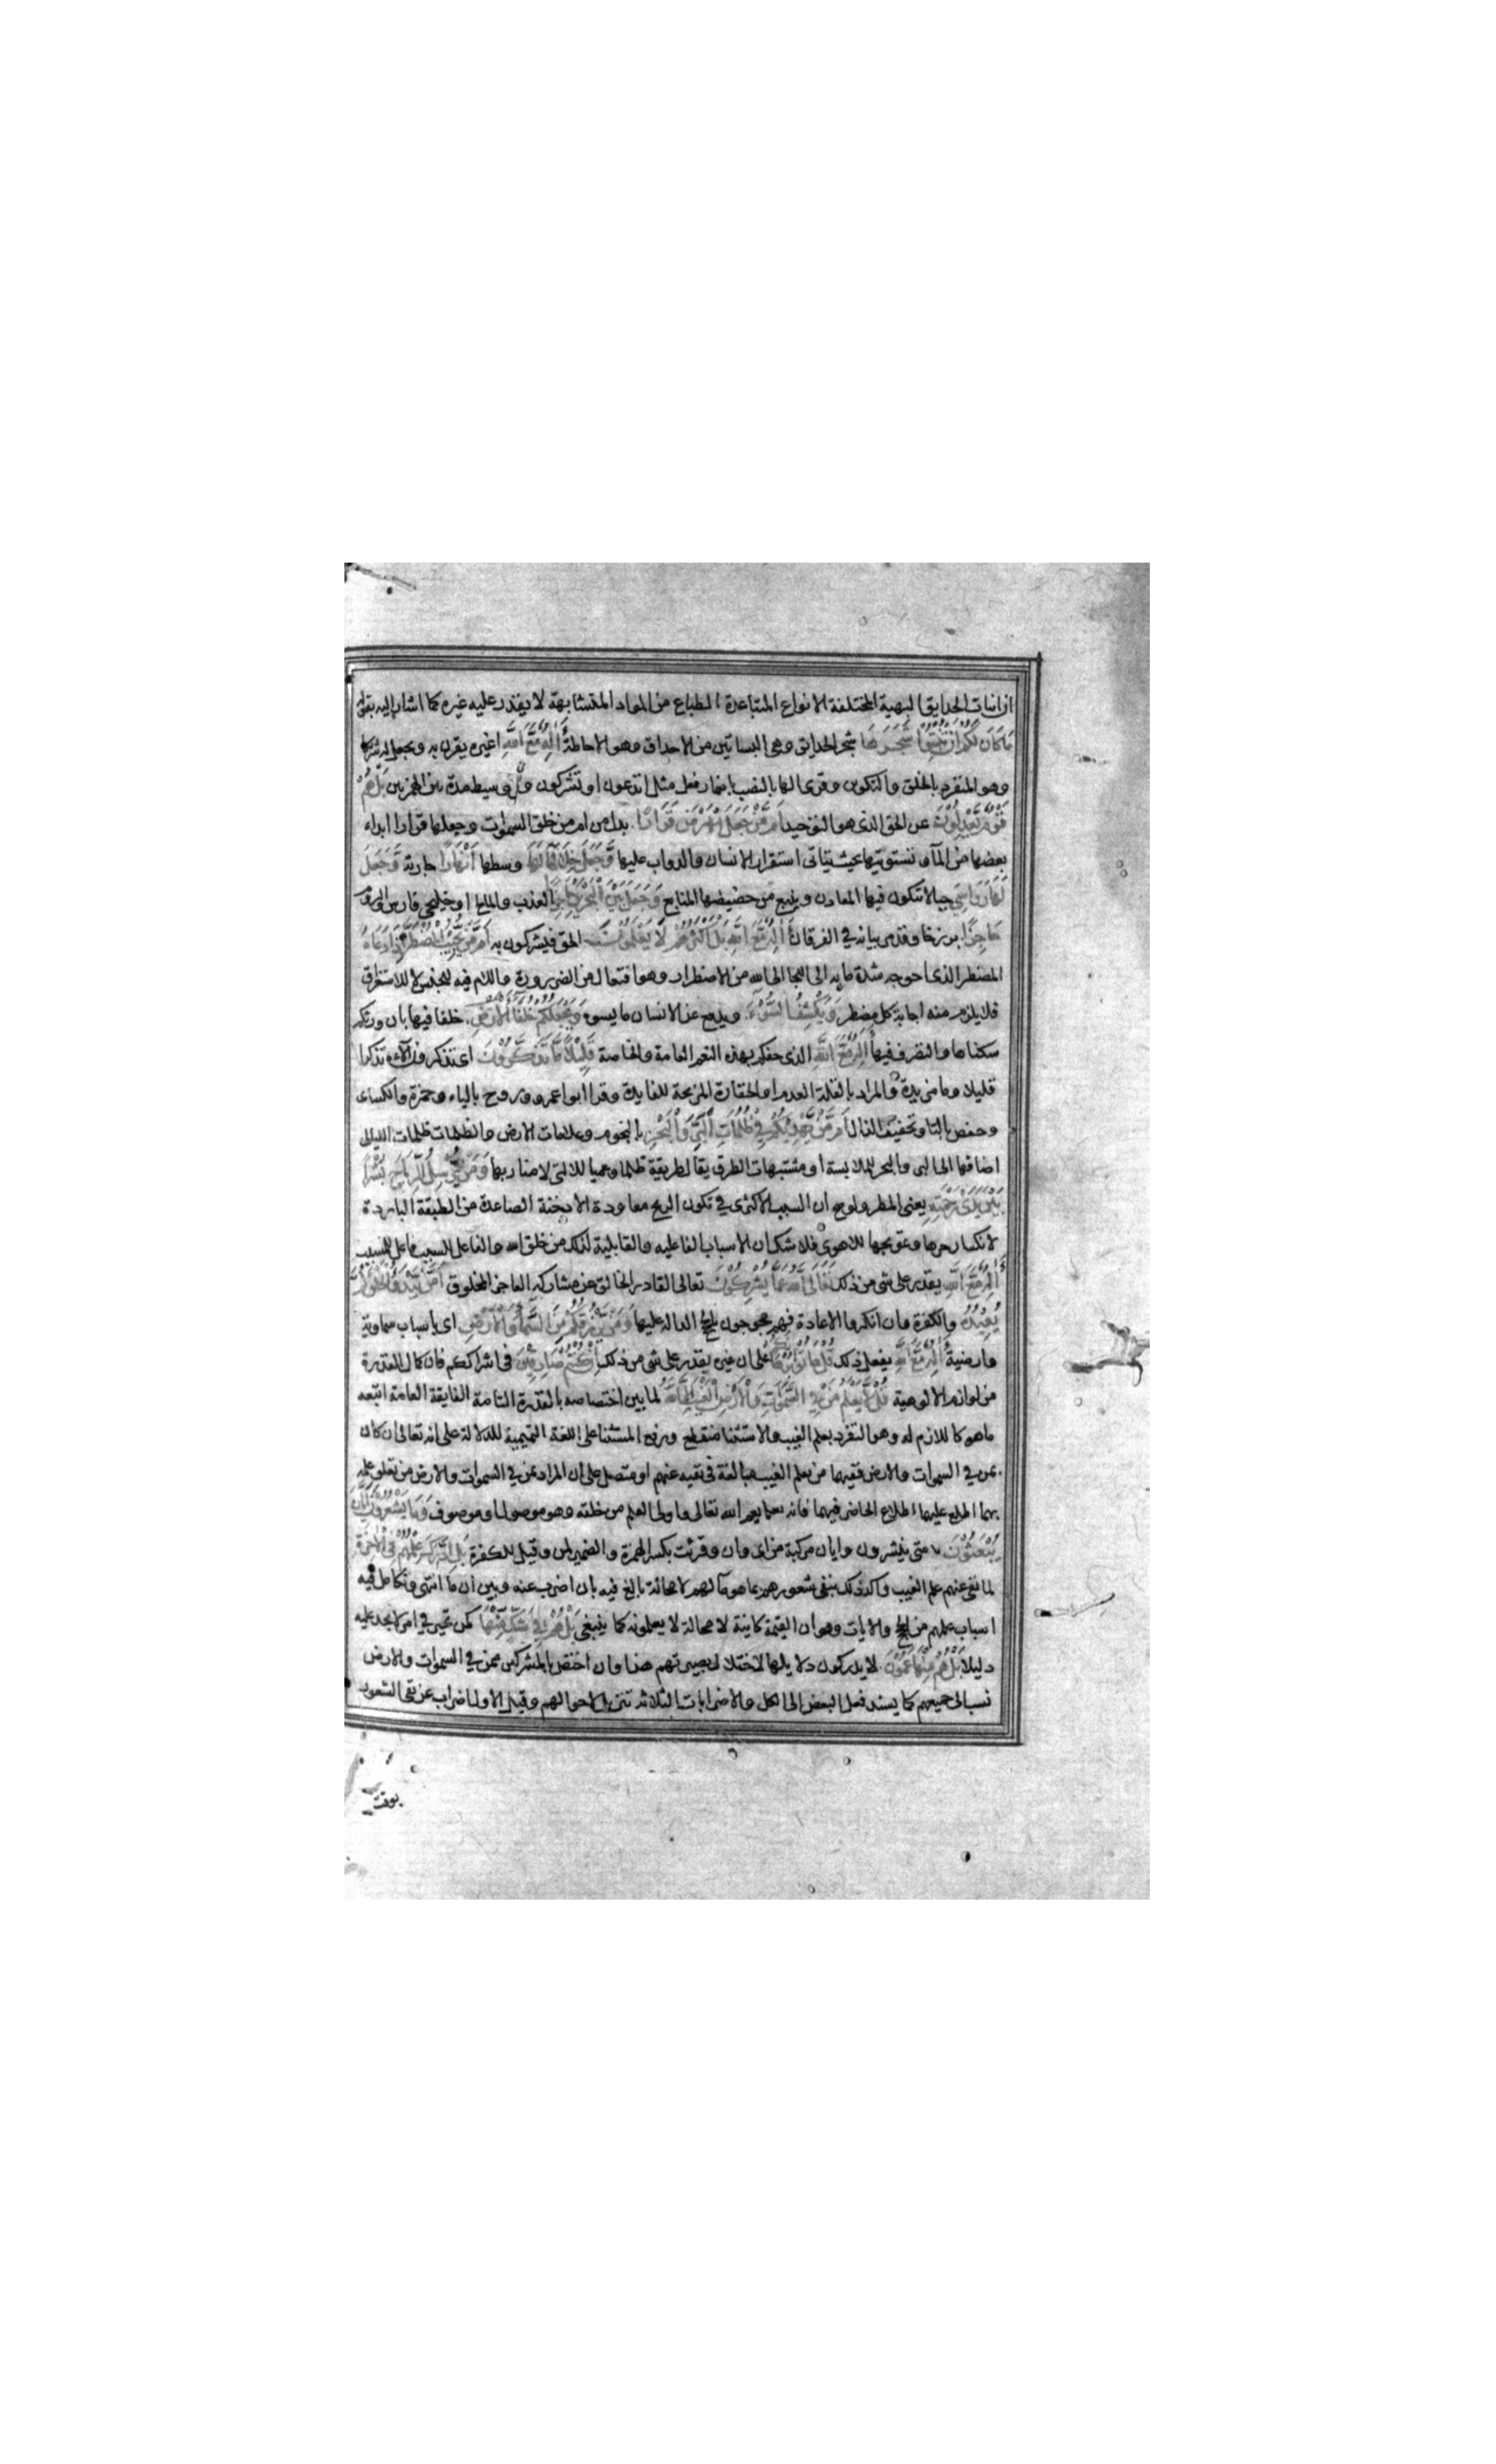 ان انبات الحدايق البهية المختلفة الانواع المتباعدة الطباع من المواد المتشابهة لا يقدر عليه غيره كما اشار اليه بقوله
مَا كَانَ لَكُمْ اَنْ تُنْبِتُوْا شَجَرَهَا شجر الحدايق وهى البساتين من الاحداق وهو الاحاطة ءَاِلٰهٌ مَّعَ اللهِ اغيره يقرن به ويجعل له شريكا
وهو المنفرد بالخلق والتكوين وقرى الها بالنصب باضمار فعل مثل اتدعون او تشركون وبتوسيط مدة بين الهمزتين بَلْ هُمْ
قَوْمٌ يَّعْدِلُوْنَ عن الحق الذى هو التوحيد اَمَّنْ جَعَلَ الْاَرْضَ قَرَارًا بدل من امن خلق السموات وجعلها قرارا ابداء
بعضها من الماء وتسويتها بحيث يتاتى استقرار الانسان والدواب عليها وَّجَعَلَ خِلٰلَهَا وسطها اَنْهَارًا جارية وَّجَعَلَ
لَهَا رَوَاسِيَ جبالا تتكون فيها المعادن وينبع من حضيضها المنابع وَجَعَلَ بَيْنَ الْبَحْرَيْنِ العذب والمالح او خليجى فارس والروم
حَاجِزًا برزخا وقد مر بيانه في الفرقان ءَاِلٰهٌ مَّعَ اللهِ بَلْ اَكْثَرُهُمْ لَا يَعْلَمُوْنَ الحق فيشركون به اَمَّنْ يُّجِيْبُ الْمُضْطَرَّ اِذَا دَعَاهُ
المضطر الذى احوجه شدة ما به الى اللجا الى الله من الاضطرار وهو افتعال من الضرورة واللام فيه للجنس لا للاستغراق
فلا يلزم منه اجابة كل مضطر وَيَكْشِفُ السُّوْٓءَ ويدفع عن الانسان ما يسوه وَيَجْعَلُكُمْ خُلَفَاءَ الْاَرْضِ خلفا فيها بان ورثكم
سكناها والتصرف فيها ءَاِلٰهٌ مَّعَ اللهِ الذى حفكم بهذه النعم العامة والخاصة قَلِيْلًا مَّا تَذَكَّرُوْنَ اى تذكرون الآءه تذكرا
قليلا وما مزيدة والمراد بالقلة العدم او الحقارة المزيحة للفايدة وقرا ابو اعمرو وروح بالياء وحمزة والكساى
وحفص بالتا وتخفيف الذال اَمَّنْ يَّهْدِيْكُمْ فِيْ ظُلُمٰتِ الْبَرِّ وَالْبَحْرِ بالنجوم وعلامات الارض والظلمات ظلمات الليالى
اضافها الى البر والبحر للملابسة او مشتبهات الطرق يقال طريقة ظلما وعميا للتى لا منار بها وَمَنْ يُّرْسِلُ الرِّيَاحَ بُشْرًا
بَيْنَ يَدَيْ رَحْمَتِهٖ يعنى المطر ولو صح ان السبب الاكثرى في تكون الريح معاودة الادخنة الصاعدة من الطبقة الباردة
لانكسار حرها وتمويجها للاهوى فلا شك ان الاسباب الفاعليه والقابلية لذلك من خلق الله والفاعل للسبب فاعل للمسبب
ءَاِلٰهٌ مَّعَ اللهِ يقدر على شى من ذلك تَعَالَى اللهُ عَمَّا يُشْرِكُوْنَ تعالى القادر الخالق عن مشاركة العاجز المخلوق اَمَّنْ يَّبْدَؤُا الْخَلْقَ ثُمَّ
يُعِيْدُهٗ والكفرة وان انكروا الاعادة فهم محجوجون بالحجج الدالة عليها وَمَنْ يَّرْزُقُكُمْ مِّنَ السَّمَاءِ وَالْاَرْضِ اى باسباب سماوية
وارضية ءَاِلٰهٌ مَّعَ اللهِ يفعل ذلك قُلْ هَاتُوْا بُرْهَانَكُمْ على ان غيره يقدر على شى من ذلك اِنْ كُنْتُمْ صٰدِقِيْنَ فى اشراككم فان كمال القدرة
من لوازم الالوهية قُلْ لَّا يَعْلَمُ مَنْ فِي السَّمٰوٰتِ وَالْاَرْضِ الْغَيْبَ اِلَّا اللهُ لما بين اختصاصه بالقدرة التامة الفايقة العامة اتبعه
ماهو كاللازم له وهو التفرد بعلم الغيب والاستثنا منقطع ورفع المستثنا على اللغة التميمية للدلالة على انه تعالى ان كان
ممن في السموات والارض ففيها من يعلم الغيب مبالغة فى نفيه عنهم او متصل على ان المراد ممن في السموات والارض من تعلق علمه
بهما اطلع عليهما اطلاع الحاضر فيهما فانه يعم الله تعالى واولى العلم من خلقه وهو موصول او موصوف وَمَا يَشْعُرُوْنَ اَيَّانَ
يُبْعَثُوْنَ متى ينشرون وايان مركبة من اى وان وقرئت بكسر الهمزة والضمير لمن وقيل للكفرة بَلِ ادّٰرَكَ عِلْمُهُمْ فِي الْاٰخِرَةِ
لما نفى عنهم علم الغيب واكد ذلك بنفى شعورهم بما هو مآلهم لا محالة بالغ فيه بان اضرب عنه وبين ان ما انتهى وتكامل فيه
اسباب علمهم من الحجج والايات وهو ان القيمة كاينة لا محالة لا يعلمونه كما ينبغى بَلْ هُمْ فِيْ شَكٍّ مِّنْهَا كمن تحير في امر لا يجد عليه
دليلا بَلْ هُمْ مِّنْهَا عَمُوْنَ لا يدركون دلايلها لاختلال بصيرتهم هذا وان اختص بالمشركين ممن في السموات والارض
نسب الى جميعهم كما يسند فعل البعض الى الكل والاضرابات الثلاثه تنزيل لاحوالهم وقيل الاول اضراب عن نفى الشعور
بوقت